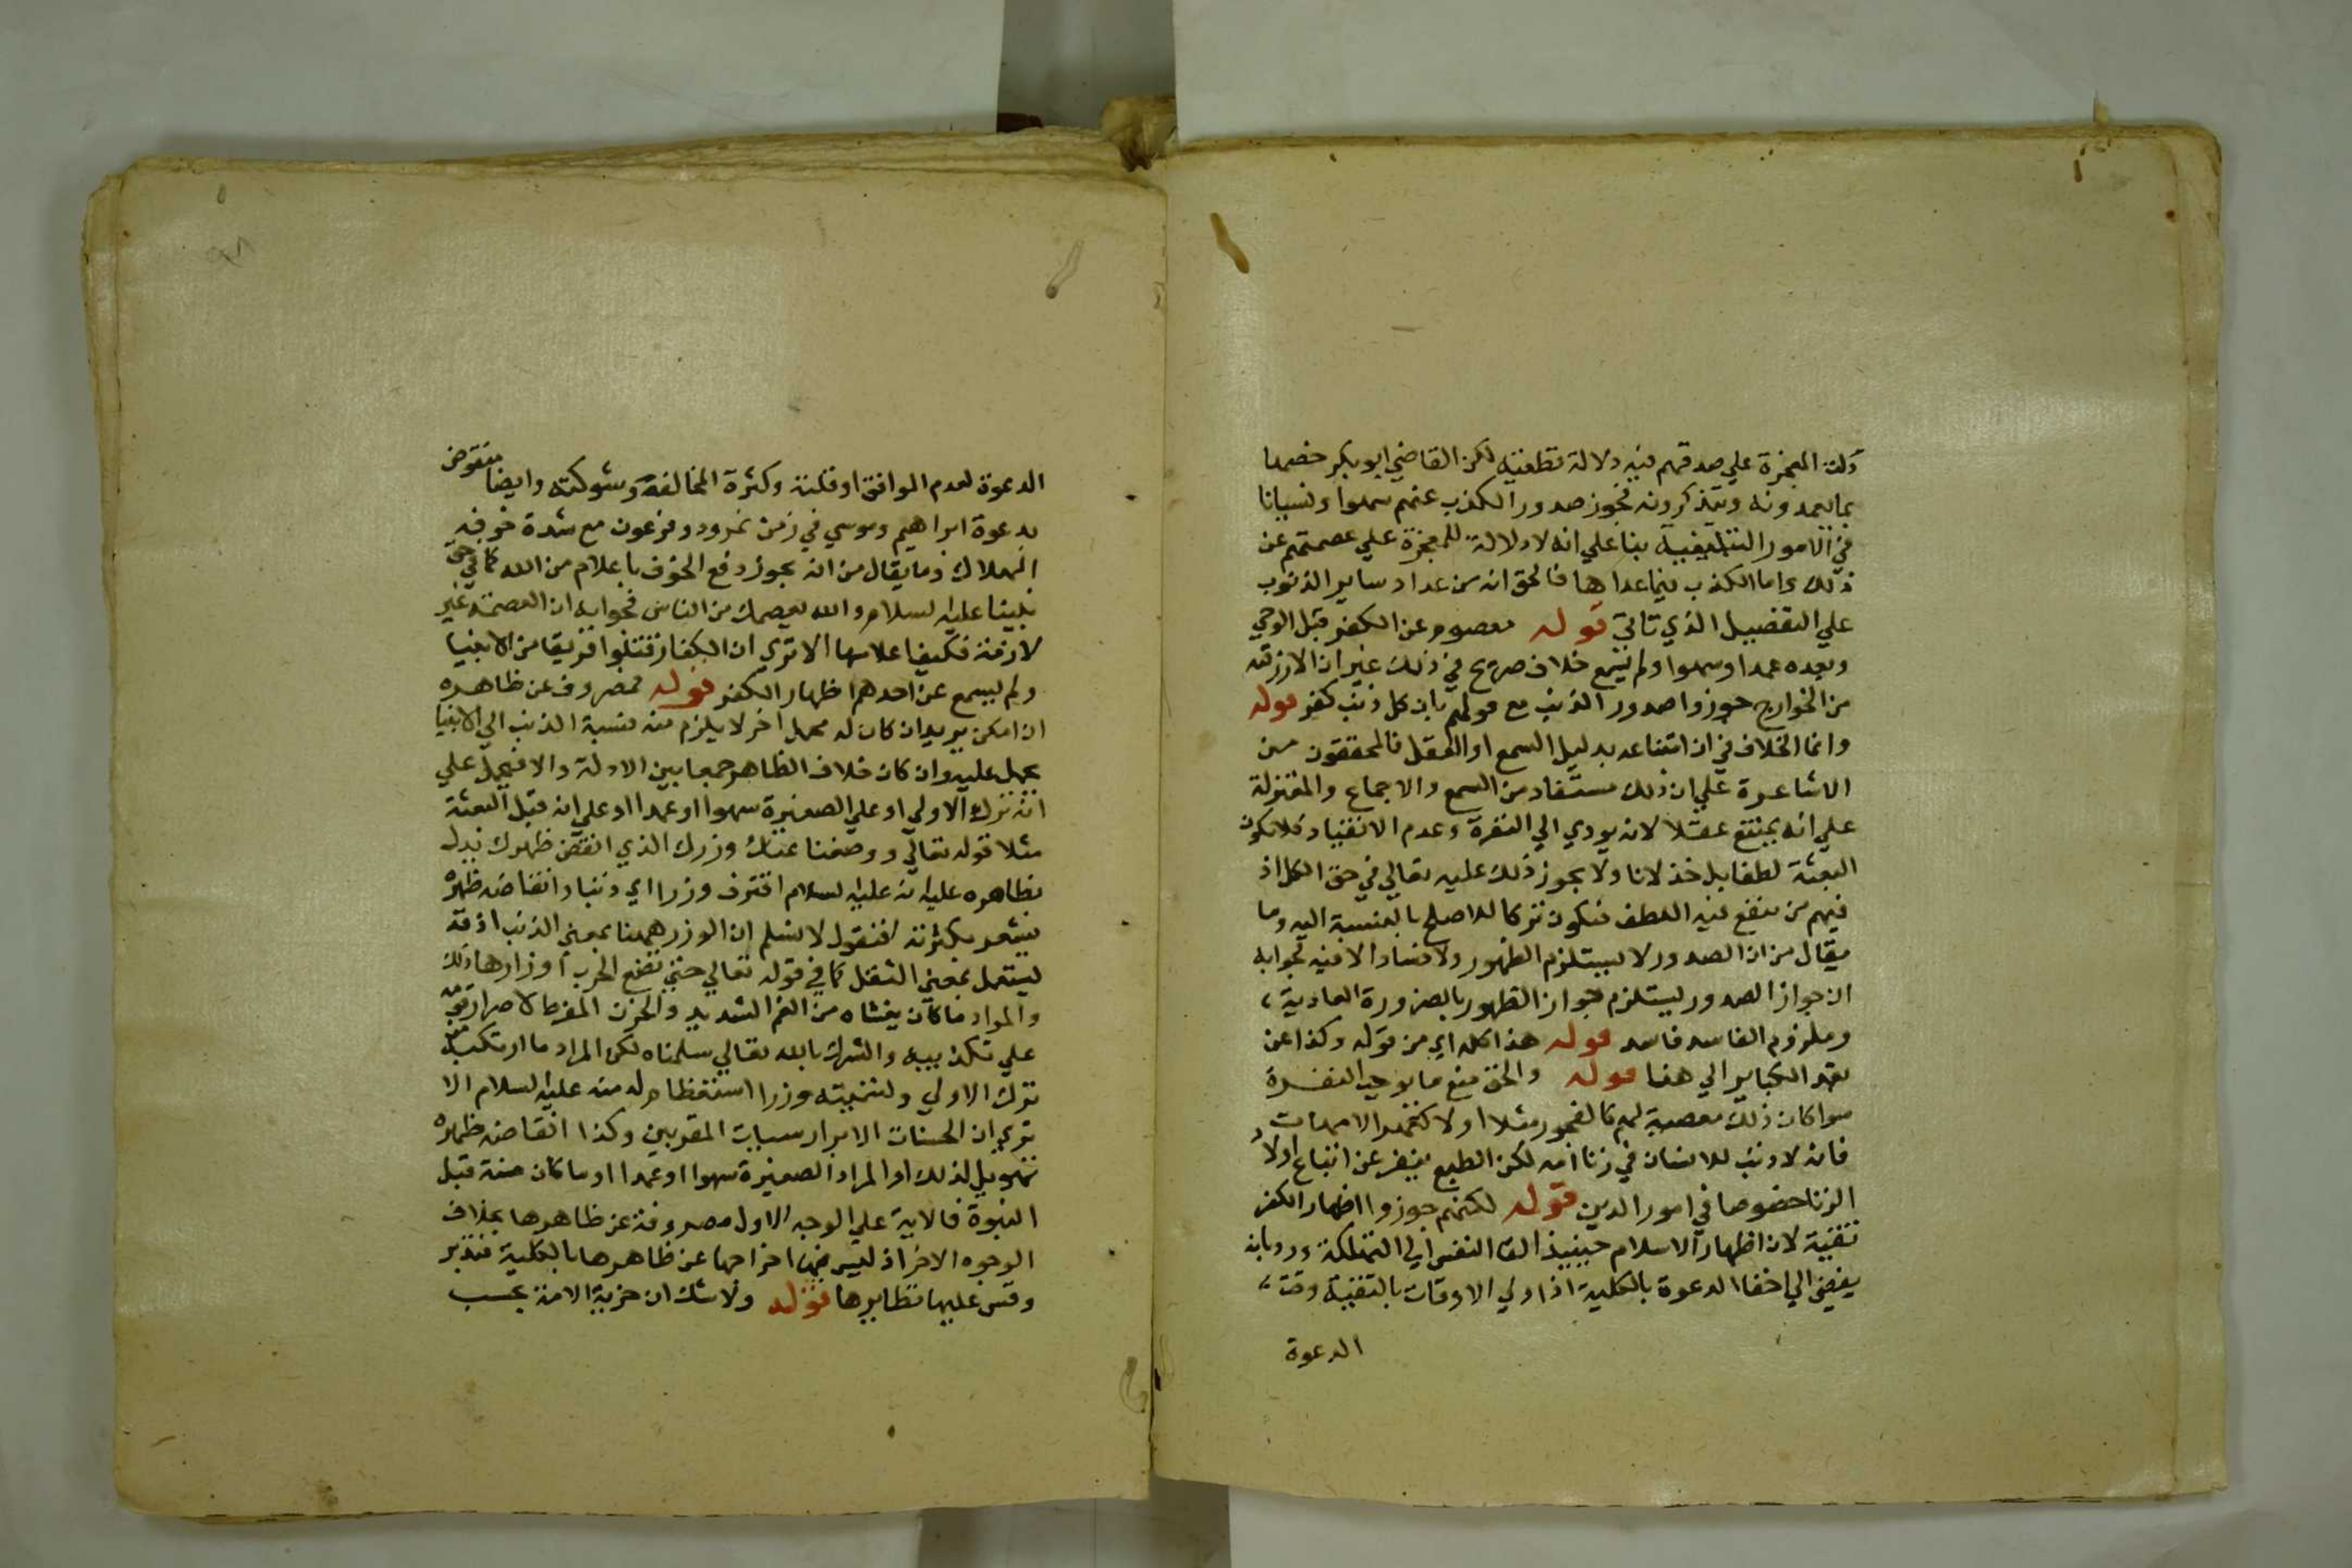 دلت المعجزة علي صدقهم فيه دلالة قطعية لكن القاضي ابو بكر خصها
بما يعمدونه ويتذكرونه فجوز صدور الكذب عنهم سهوا ونسيانا
في الامور التبليغية بنا علي انه لا دلالة للمعجزة علي عصمتهم عن
ذلك واما الكذب فيما عداها فالحق انه من عداد ساير الذنوب
علي التفصيل الذي تاتي قوله معصوم عن الكفر قبل الوحي
وبعده عمدا وسهوا ولم يسمع خلاف صريح في ذلك غير ان الازرقه
من الخوارج جوزوا صدور الذنب مع قولهم بان كل ذنب كفر قوله
وانما الخلاف في ان امتناعه بدليل السمع او العقل فالمحققون من
الاشاعرة علي ان ذلك مستفاد من السمع والاجماع والمعتزلة
علي انه يمتنع عقلا لانه يودي الي النفرة وعدم الانقياد فلا تكون
البعثة لطفا بل خذلانا ولا يجوز ذلك عليه تعالي في حق الكل اذ
فيهم من ينفع فيه اللطف فتكون تركا للاصلح بالنسبة اليه وما
يقال من ان الصدور لا يستلزم الظهور ولا فساد الا فيه فجوابه
ان جواز الصدور ليستلزم جواز الظهور بالضرورة العادية
وملزوم الفاسد فاسد قوله هذا كله اي من قوله وكذا عن
تعمد الكباير الي هنا قوله والحق منع ما يوجب النفرة
سوا كان ذلك معصية لهم كالفجور مثلا او لا كعهر الامهات
فانه لا ذنب للانسان في زنا امه لكن الطبع ينفر عن اتباع اولاد
الزنا خصوصا في امور الدين قوله لكنهم جوزوا اظهار الكفر
تقية لان اظهار الاسلام حينيذ القا النفس الي التهلكة ورد بانه
يفضي الي اخفا الدعوة بالكلية اذ اولي الاوقات بالتقية وقت
الدعوة
الدعوة لعدم الموافق او قلته وكثرة المخالفة وشوكته وايضا منقوض
بدعوة ابراهيم وموسي في زمن نمرود وفرعون مع شدة خوفه
الهلاك وما يقال من انه يجوز دفع الخوف باعلام من الله كما في حق
نبينا عليه السلام والله يعصمك من الناس فجوابه ان العصمة غير
لازمة فكيف اعلامها الا تري ان الكفار قتلوا فريقا من الانبيا
ولم يسمع عن احدهم اظهار الكفر قوله فمصروف عن ظاهره
ان امكن يريد ان كان له محمل اخر لا يلزم منه نسبة الذنب الي الانبيا
يحمل عليه وان كان خلاف الظاهر جمعا بين الادلة والا فيحمل علي
انه ترك الاولي او علي الصغيرة سهوا او عمدا او علي انه قبل البعثة
مثلا قوله تعالي ووضعنا عنك وزرك الذي انقض ظهرك يدل
بظاهره عليه انه عليه السلام اقترف وزرا اي ذنبا وانقاضه ظهره
يشعر بكثرته فنقول لا نسلم ان الوزر ههنا بمعني الذنب اذ قد
يستعمل بمعني الثقل كما في قوله تعالي حتي تضع الحرب اوزارها ذلك
والمراد ما كان يغشاه من الغم الشديد والحزن المفرط لاصرار قومه
علي تكذيبه والشرك بالله تعالي سلمناه لكن المراد ما ارتكبه من
ترك الاولي ولتسميته وزرا استعظام له منه عليه السلام الا
تري ان الحسنات الابرار سيات المقربين وكذا انقاضه ظهره
تهويل لذلك او المراد الصغيرة سهوا او عمدا او ما كان منه قبل
النبوة فالاية علي الوجه الاول مصروفة عن ظاهرها بخلاف
الوجوه الاخر اذ ليس فيها اخراجها عن ظاهرها بالكلية فتدبر
وقس عليها نظايرها قوله ولا شك ان خيرية الامة بحسب